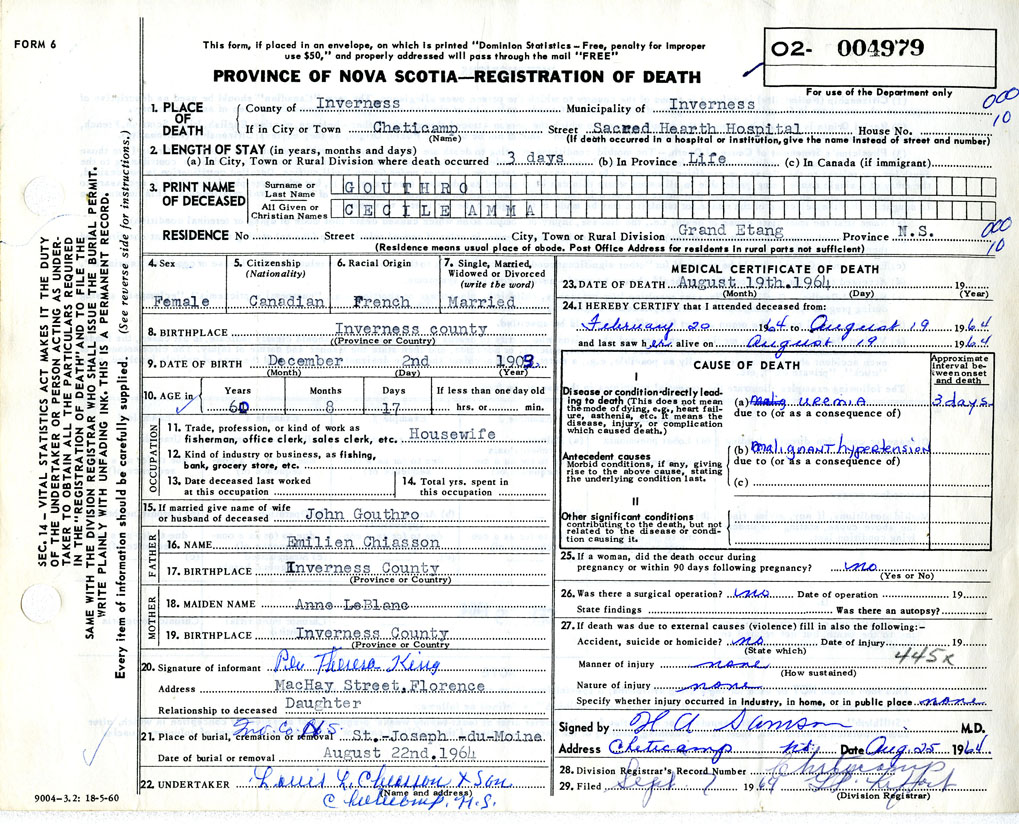 FORM 6
This form, if placed in an envelope, on which is printed "Dominion Statistics – Free, penalty for improper
use $50," and properly addressed will pass through the mail "FREE"
PROVINCE OF NOVA SCOTIA—REGISTRATION OF DEATH
02- 004979
For use of the Department only
000
10
1. PLACE OF DEATH
County of Inverness Municipality of Inverness
If in City or Town Cheticamp Street Sacred Hearth Hospital House No.
(Name) (If death occurred in a hospital or institution, give the name instead of street and number)
2. LENGTH OF STAY (in years, months and days)
(a) In City, Town or Rural Division where death occurred 3 days (b) In Province Life (c) In Canada (if immigrant)
3. PRINT NAME OF DECEASED
Surname or Last Name GOUTHRO
All Given or Christian Names CECILE AMMA
000
10
RESIDENCE No Street City, Town or Rural Division Grand Etang Province N.S.
(Residence means usual place of abode. Post Office Address for residents in rural parts not sufficient)
4. Sex
Female
5. Citizenship (Nationality)
Canadian
6. Racial Origin
French
7. Single, Married, Widowed or Divorced (write the word)
Married
8. BIRTHPLACE Inverness county
(Province or County)
9. DATE OF BIRTH December 2nd 1903
(Month) (Day) (Year)
10. AGE in Years Months Days If less than one day old
60 8 17 hrs. or min.
OCCUPATION
11. Trade, profession, or kind of work as
fisherman, office clerk, sales clerk, etc. Housewife
12. Kind of industry or business, as fishing,
bank, grocery store, etc.
13. Date deceased last worked
at this occupation
14. Total yrs. spent in
this occupation
15. If married give name of wife
or husband of deceased John Gouthro
FATHER
16. NAME Emilien Chiasson
17. BIRTHPLACE Inverness County
(Province or Country)
MOTHER
18. MAIDEN NAME Anne LeBlanc
19. BIRTHPLACE Inverness County
(Province or Country)
20. Signature of informant Per Theresa King
Address MacHay Street, Florence
Relationship to deceased Daughter
21. Place of burial, cremation or removal St.-Joseph -du-Moine
Date of burial or removal August 22nd. 1964
22. UNDERTAKER Louis L. Chiasson & Son
(Name and address)
Cheticamp, N.S.
9004-3.2: 18-5-60
MEDICAL CERTIFICATE OF DEATH
23. DATE OF DEATH August 19th. 1964 19
(Month) (Day) (Year)
24. I HEREBY CERTIFY that I attended deceased from:
February 20 1964 to August 19 1964
and last saw her alive on August 19 1964
CAUSE OF DEATH
Approximate interval between onset and death
I
Disease or condition directly leading to death (This does not mean the mode of dying, e.g., heart failure, asthenia, etc. It means the disease, injury, or complication which caused death.)
(a) Uremia 3 days
due to (or as a consequence of)
Antecedent causes
Morbid conditions, if any, giving rise to the above cause, stating the underlying condition last.
(b) Malignant hypertension
due to (or as a consequence of)
(c)
II
Other significant conditions
contributing to the death, but not related to the disease or condition causing it.
25. If a woman, did the death occur during
pregnancy or within 90 days following pregnancy? no
(Yes or No)
26. Was there a surgical operation? no Date of operation 19
State findings Was there an autopsy?
27. If death was due to external causes (violence) fill in also the following:–
Accident, suicide or homicide? no Date of injury 19
(State which)
445x
Manner of injury none
(How sustained)
Nature of injury none
Specify whether injury occurred in industry, in home, or in public place none
Signed by H A Samson M.D.
Address Cheticamp Date Aug. 25 1964
28. Division Registrar's Record Number
29. Filed Sept 1964
(Division Registrar)
SEC. 14 – VITAL STATISTICS ACT MAKES IT THE DUTY
OF THE UNDERTAKER OR PERSON ACTING AS UNDER-
TAKER TO OBTAIN ALL THE PARTICULARS REQUIRED
IN THE "REGISTRATION OF DEATH" AND TO FILE THE
SAME WITH THE DIVISION REGISTRAR WHO SHALL ISSUE THE BURIAL PERMIT.
WRITE PLAINLY WITH UNFADING INK. THIS IS A PERMANENT RECORD.
Every item of information should be carefully supplied. (See reverse side for instructions.)